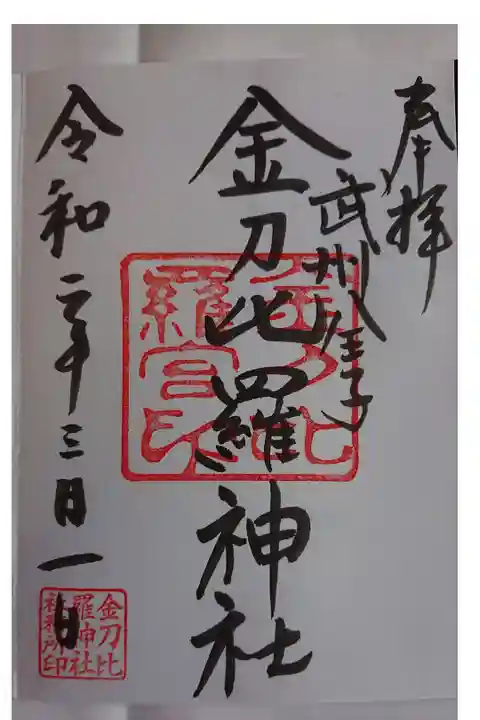 奉拝
武州八王子
金刀比羅神社
令和二年三月一日
金刀比羅宮印
金刀比
羅神社
社務所印